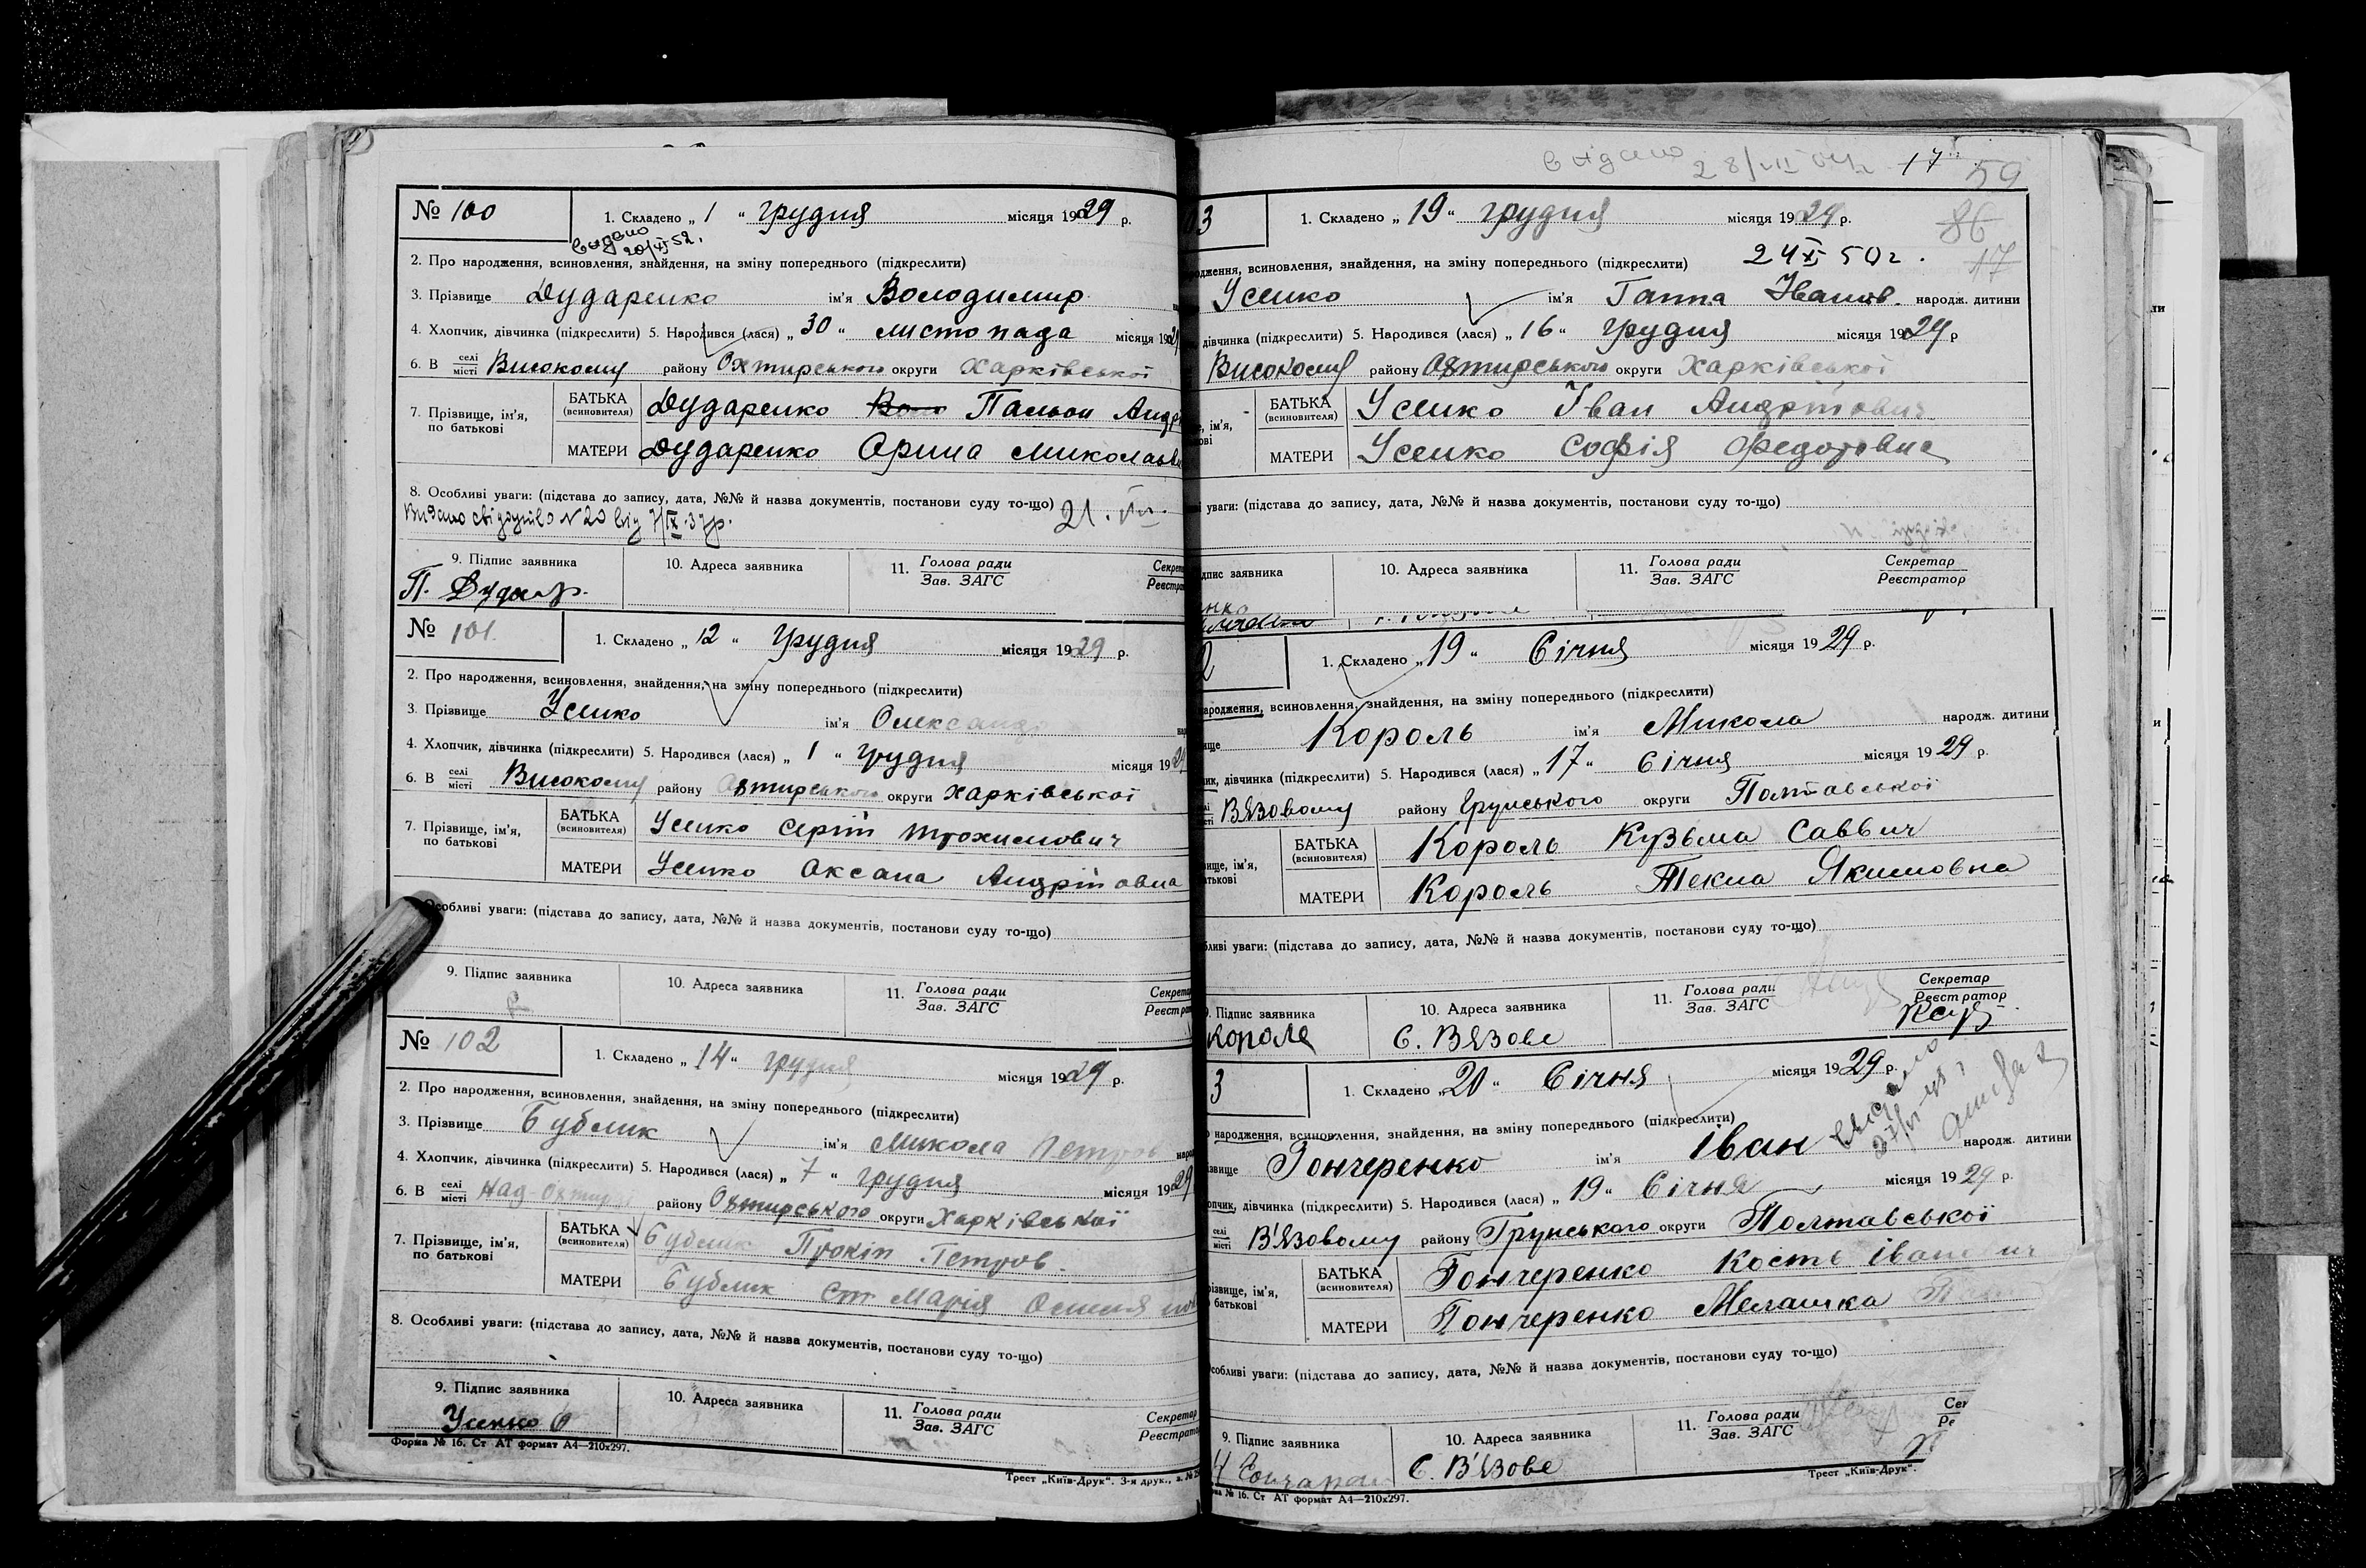 № 100
1. Складено „ 1 “ грудня місяця 1929 р.
видано
20/XI 52.
2. Про народження, всиновлення, знайдення, на зміну попереднього (підкреслити)
3. Прізвище Дударенко ім'я Володимир
4. Хлопчик, дівчинка (підкреслити) 5. Народився (лася) „ 30 “ листопада місяця 1929
6. В селі місті Високому району Охтирського округи Харківської
7. Прізвище, ім'я, по батькові
БАТЬКА (всиновителя) Дударенко Пальон Андр
МАТЕРИ Дударенко Орина Миколаевн
8. Особливі уваги: (підстава до запису, дата, №№ й назва документів, постанови суду то-що) 21.
Видано свідоцтво №20 від 7/IX.37р.
9. Підпис заявника
10. Адреса заявника
11. Голова ради
Зав. ЗАГС
Секрета
Реєстрат
П. Дудар.
№ 101
1. Складено „ 12 “ грудня місяця 1929 р.
2. Про народження, всиновлення, знайдення, на зміну попереднього (підкреслити)
3. Прізвище Усенко ім'я Олександр
4. Хлопчик, дівчинка (підкреслити) 5. Народився (лася) „ 1 “ грудня місяця 1929
6. В селі місті Високому району Охтирського округи Харківської
7. Прізвище, ім'я, по батькові
БАТЬКА (всиновителя) Усенко Сергій Трохимович
МАТЕРИ Усенко Оксана Андріївна
Особливі уваги: (підстава до запису, дата, №№ й назва документів, постанови суду то-що)
9. Підпис заявника
10. Адреса заявника
11. Голова ради
Зав. ЗАГС
Секрета
Реєстрат
№ 102
1. Складено „ 14 “ грудня місяця 1929 р.
2. Про народження, всиновлення, знайдення, на зміну попереднього (підкреслити)
3. Прізвище Бублик ім'я Микола Петров
4. Хлопчик, дівчинка (підкреслити) 5. Народився (лася) „ 7 “ грудня місяця 1929
6. В селі місті Над-Охтирк району Охтирського округи Харківської
7. Прізвище, ім'я, по батькові
БАТЬКА (всиновителя) Бублик Прокіп Петров.
МАТЕРИ Бублик Марія
8. Особливі уваги: (підстава до запису, дата, №№ й назва документів, постанови суду то-що)
9. Підпис заявника
10. Адреса заявника
11. Голова ради
Зав. ЗАГС
Секретар
Реєстрато
Усенко О
Форма № 16. Ст АТ формат А4—210x297.
Трест „Київ-Друк“. 3-я друк., з. №
видано 28/VII 17 59
03
1. Складено „ 19 “ грудня місяця 1929 р.
86
17
родження, всиновлення, знайдення, на зміну попереднього (підкреслити) 24 XI 50 г.
Усенко ім'я Ганна Іванів. народж. дитини
дівчинка (підкреслити) 5. Народився (лася) „ 16 “ грудня місяця 1929 р
Високому району Охтирського округи Харківської
БАТЬКА (всиновителя) Усенко Іван Андрійович
МАТЕРИ Усенко Софія Федотовна
уваги: (підстава до запису, дата, №№ й назва документів, постанови суду то-що)
дпис заявника
10. Адреса заявника
11. Голова ради
Зав. ЗАГС
Секретар
Реєстратор
2
1. Складено „ 19 “ Січня місяця 1929 р.
ародження, всиновлення, знайдення, на зміну попереднього (підкреслити)
ище Король ім'я Микола народж. дитини
ик, дівчинка (підкреслити) 5. Народився (лася) „ 17 “ Січня місяця 1929 р.
Вязовому району Грунського округи Полтавської
вище, ім'я, атькові
БАТЬКА (всиновителя) Король Кузьма Саввич
МАТЕРИ Король Текла Якимовна
бливі уваги: (підстава до запису, дата, №№ й назва документів, постанови суду то-що)
9. Підпис заявника
10. Адреса заявника
11. Голова ради
Зав. ЗАГС
Секретар
Реєстратор
Король С. Вязове
3
1. Складено „ 20 “ Січня місяця 1929 р.
народження, всиновлення, знайдення, на зміну попереднього (підкреслити)
видано
ізвище Гончеренко ім'я Іван народж. дитини
опчик, дівчинка (підкреслити) 5. Народився (лася) „ 19 “ Січня місяця 1929 р.
селі місті В'язовому району Грунського округи Полтавської
різвище, ім'я, батькові
БАТЬКА (всиновителя) Гончеренко Кость Іванович
МАТЕРИ Гончеренко Мелашка
Особливі уваги: (підстава до запису, дата, №№ й назва документів, постанови суду то-що)
9. Підпис заявника
10. Адреса заявника
11. Голова ради
Зав. ЗАГС
Сек
Ре
Гончарен С. В'язове
Трест „Київ-Друк“.
ма № 16. Ст АТ формат А4—210x297.